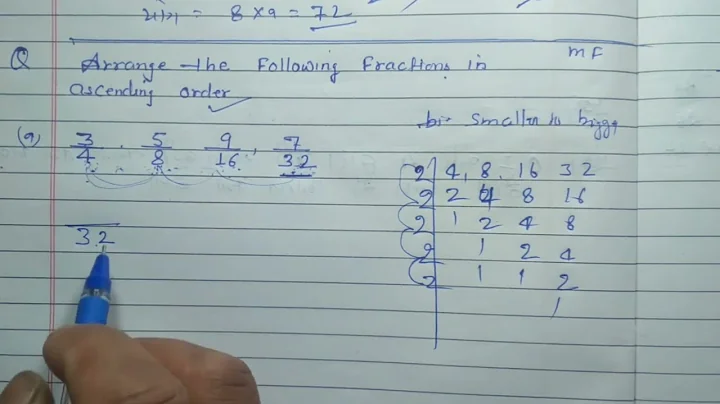 = 8 × 9 = 72
Q Arrange the Following Fractions in
ascending order
MF
(a) 3/4 , 5/8 9/16 , 7/32
Smaller to
2 | 4, 8, 16 32
2 | 2 4 8 16
2 | 1 2 4 8
2 | 1 2 4
2 | 1 1 2
1
32